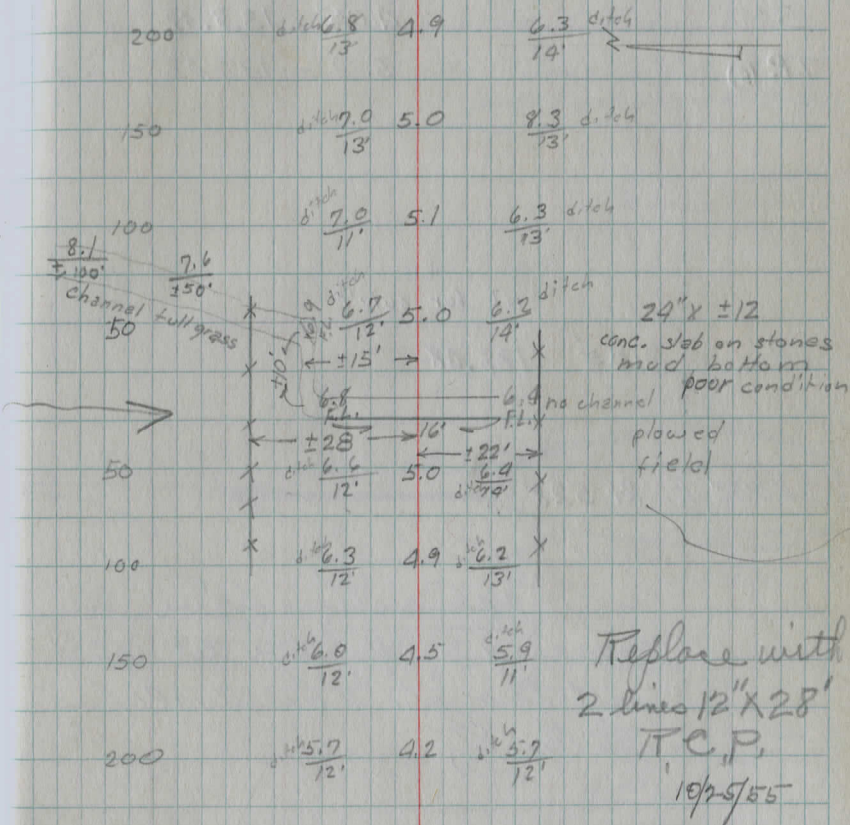 200 ditch 6.8/13' 4.9 6.3/14' ditch
150 ditch 7.0/13' 5.0 8.3/13' ditch
100 ditch 7.0/11' 5.1 6.3/13' ditch
8.1/±100' 7.6/±50'
channel full grass
50 6.9 F.L. ditch 6.7/12' 5.0 6.2/14' ditch 24" x ±12
conc. slab on stones
mud bottom
poor condition
±15'
±10'
6.8 F.L. 6.9 F.L. no channel
16'
±28 ±22'
plowed
field
50 ditch 6.6/12' 5.0 ditch 6.4/14'
100 ditch 6.3/12' 4.9 ditch 6.2/13'
150 ditch 6.0/12' 4.5 ditch 5.9/11'
Replace with
2 lines 12" X 28'
R.C.P.
200 ditch 5.7/12' 4.2 ditch 5.7/12'
10/25/55